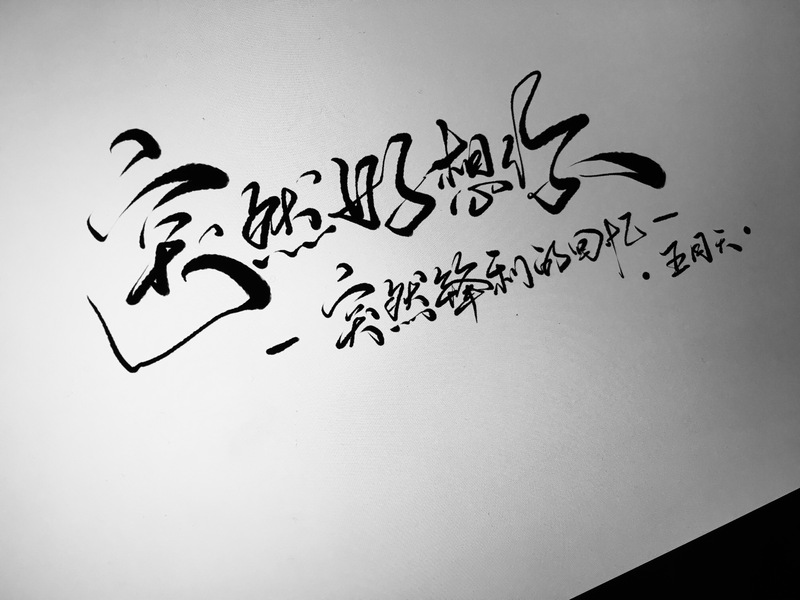 突然好想你
－突然锋利的回忆－
·五月天·